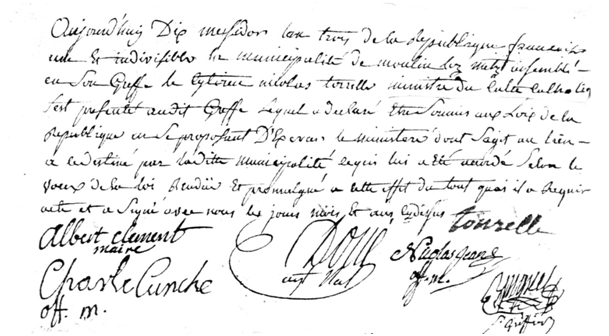 Aujourd'huy Dix messidors l'an trois de la Republique françaises
une Et indivisible la municipalité de moulin lez metz assemblé
en Son Greffe le Cytoien nicolas tourelle ministre du Culte Catholiq
s'est presenté audit Greffe Lequel a declaré Etre Soumis aux Loix de la
Republique en Se proposant D'Exercer le ministere dont Sagit au lieu
a ce destiné par laditte municipalité ce qui lui a été acordé Selon le
voeux de la loi Rendüe Et promulgué a cette effet du tout quoi il a Requir
acte et a Signé avec nous les jours mois et ans cydessus tourelle
Albert Clement
maire
Nicolas
off. m.
Charle Cunche
off. m.